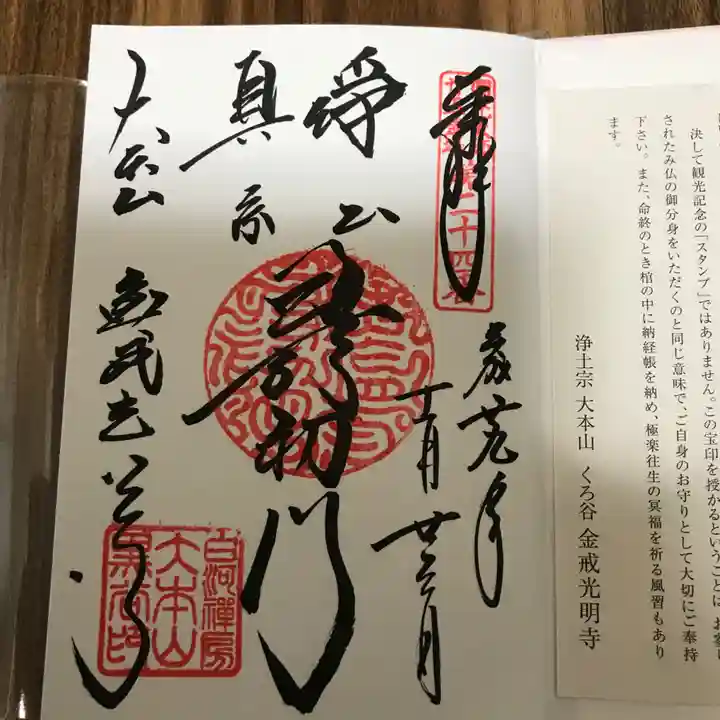 決して観光記念の「スタンプ」ではありません。この宝印を授かるということは、お
されたみ仏の御分身をいただくのと同じ意味で、ご自身のお守りとして大切にご奉持
下さい。また、命終のとき棺の中に納経帳を納め、極楽往生の冥福を祈る風習もあり
ます。
浄土宗 大本山 くろ谷 金戒光明寺
奉拝
第二十四番
廿九年
浄土
真宗
最初門
大本山
金戒光明寺
白河禪房
大本山